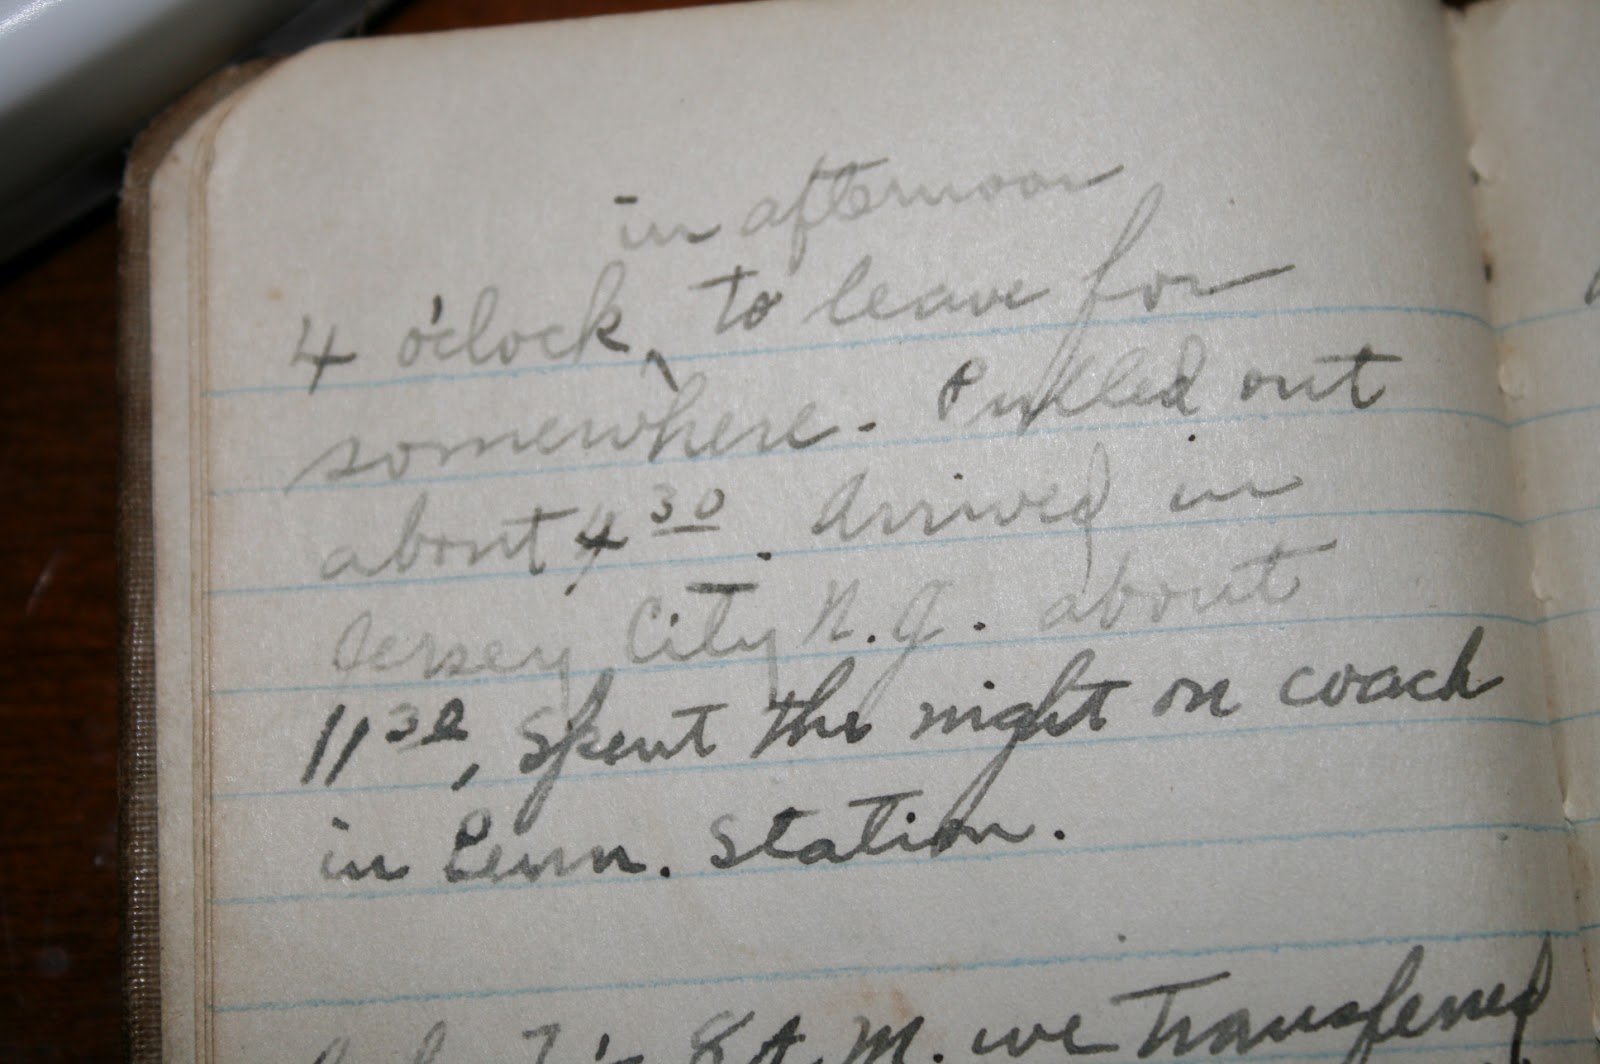 in afternoon
4 o'clock to leave for
somewhere. Pulled out
about 4 30. Arrived in
Jersey City N.J. about
11 30, Spent the night on coach
in Penn. Station.
8 A.M. we transferred